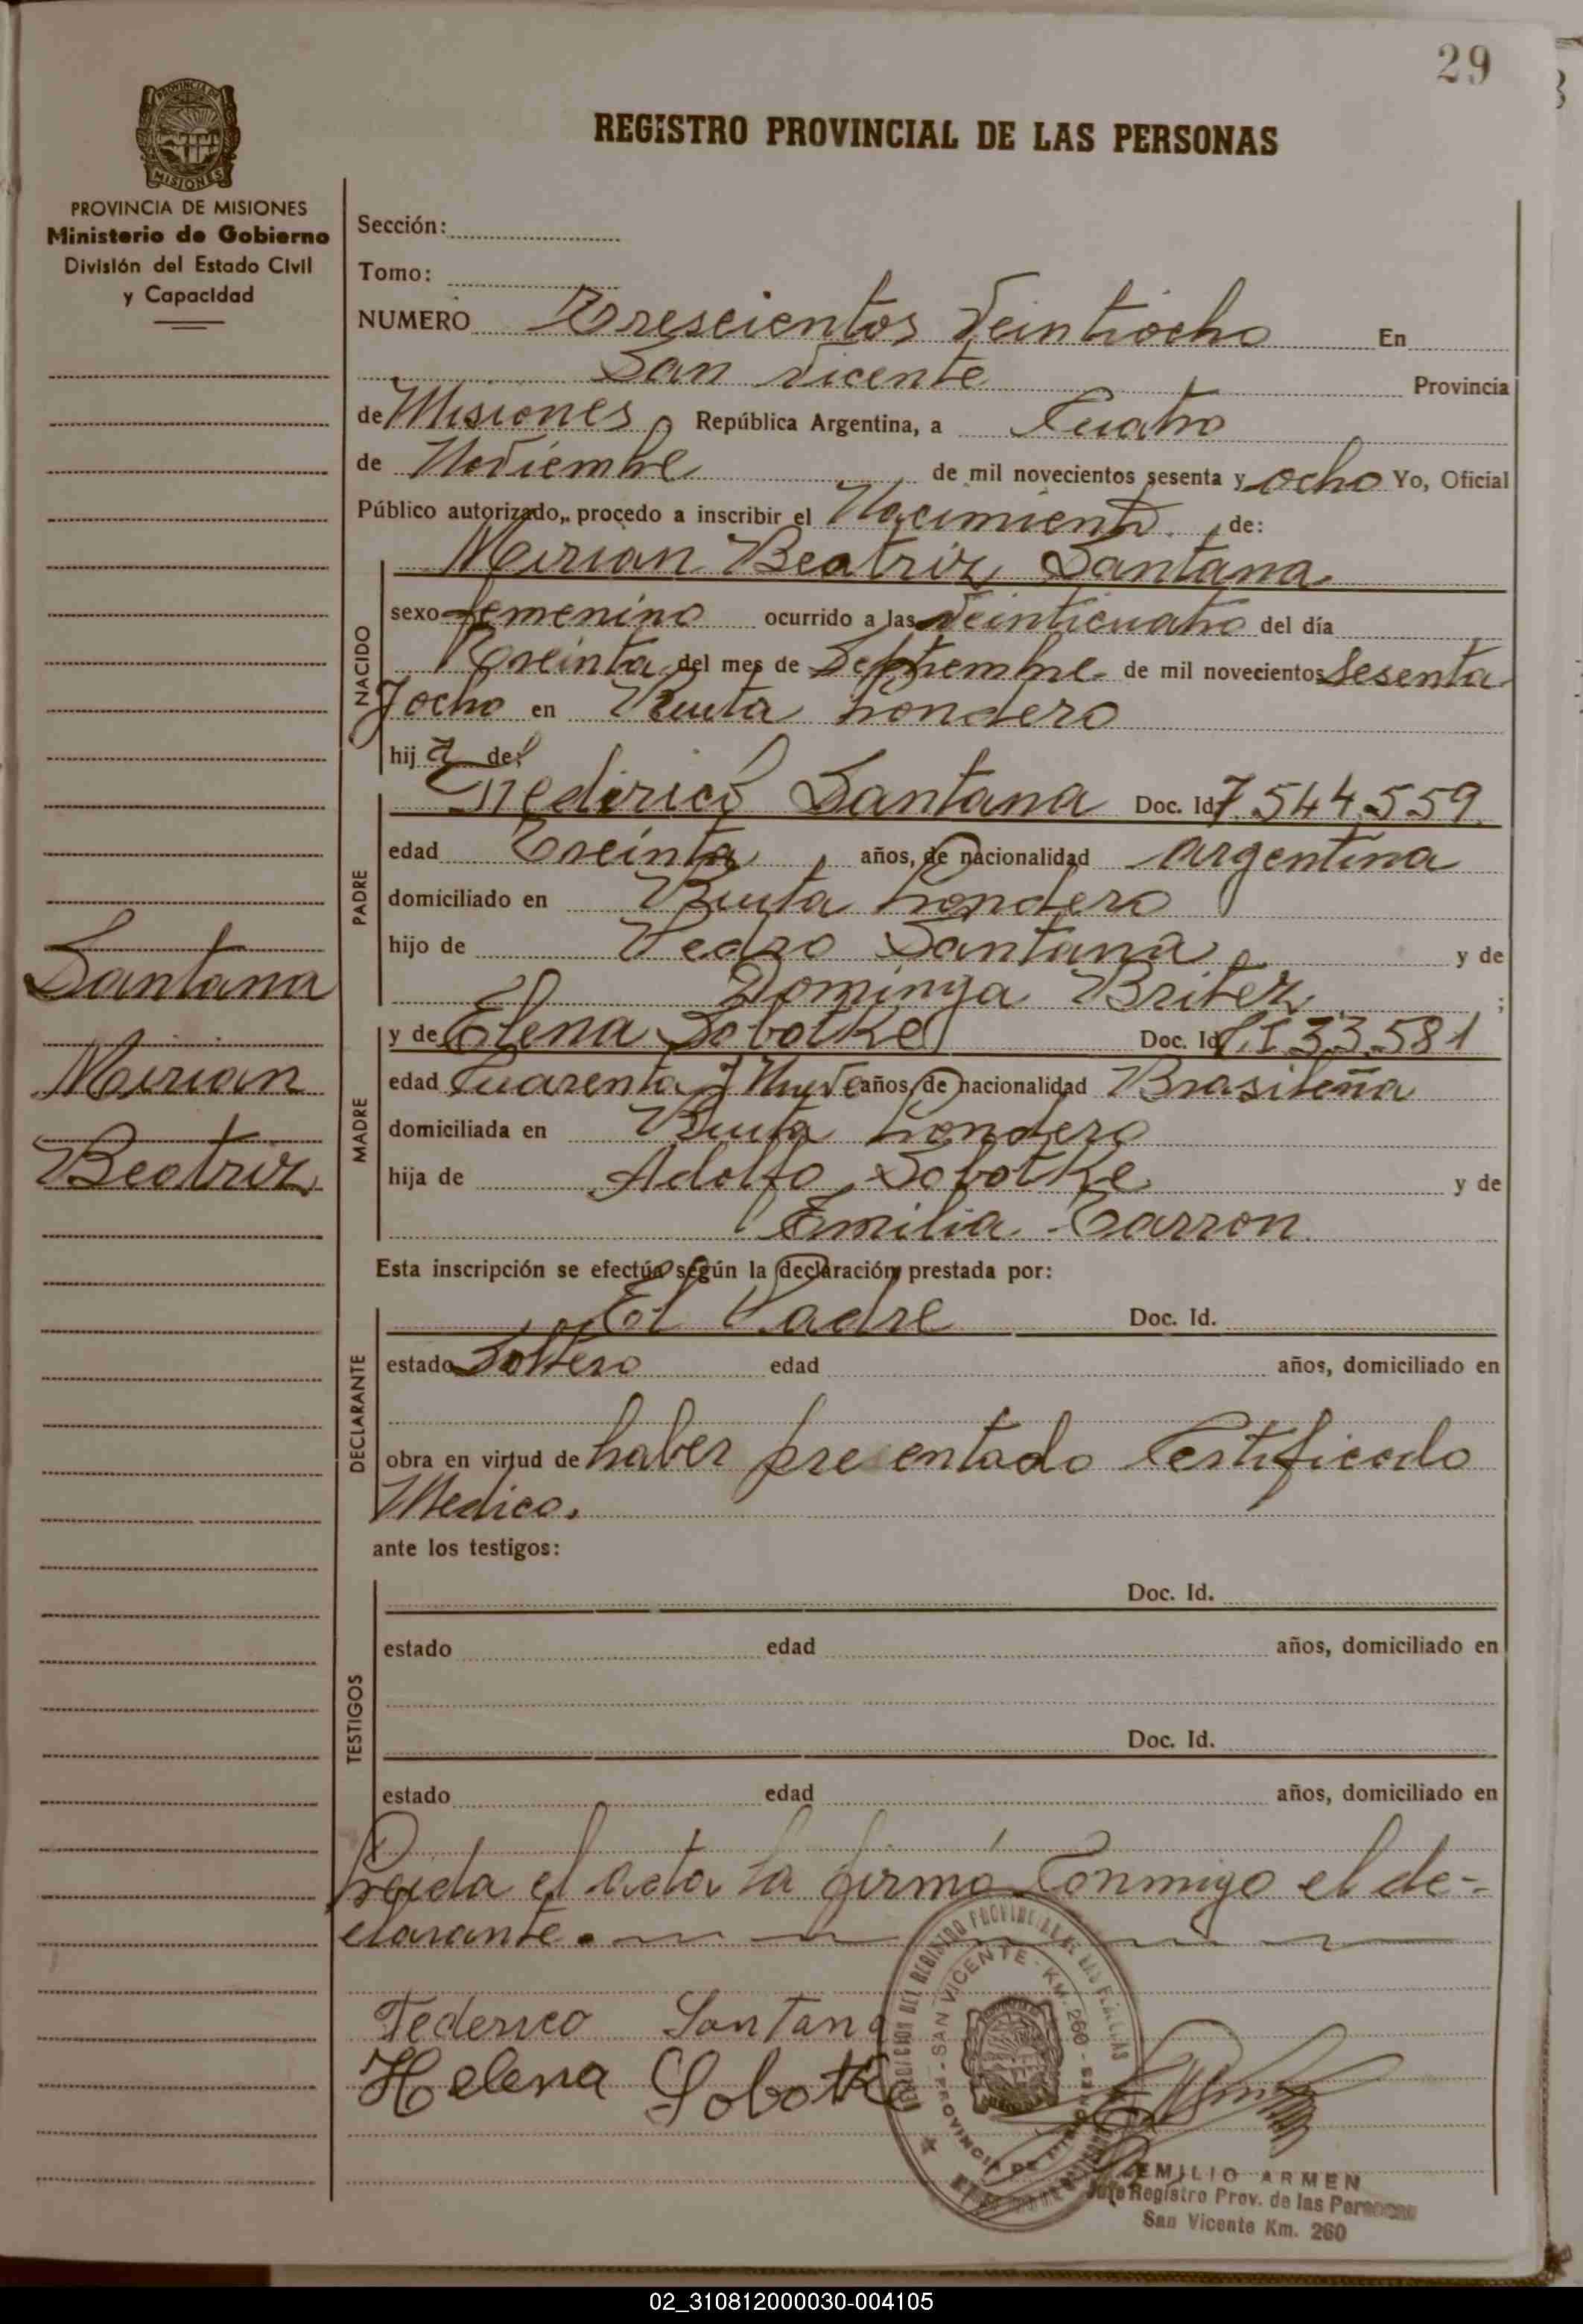 29
REGISTRO PROVINCIAL DE LAS PERSONAS
PROVINCIA DE MISIONES
Ministerio de Gobierno
División del Estado Civil
y Capacidad
Sección:
Tomo:
NUMERO Trescientos Veintiocho En
San Vicente Provincia
de Misiones República Argentina, a Cuatro
de Noviembre de mil novecientos sesenta y ocho Yo, Oficial
Público autorizado, procedo a inscribir el Nacimiento de:
Mirian Beatriz Santana
NACIDO
sexo femenino ocurrido a las Veinticuatro del día
Treinta del mes de Septiembre de mil novecientos Sesenta
y ocho en Ruta Londero
hija de:
Federico Santana Doc. Id 7.544.559
PADRE
edad Treinta años, de nacionalidad Argentina
domiciliado en Ruta Londero
hijo de Pedro Santana y de
Dominga Britez ;
Santana
Mirian
Beatriz
y de Elena Sobotke Doc. Id 33.581
MADRE
edad Cuarenta y años, de nacionalidad Brasileña
domiciliada en Ruta Londero
hija de Adolfo Sobotke y de
Emilia Carron
Esta inscripción se efectúa según la declaración prestada por:
El Padre Doc. Id.
DECLARANTE
estado Soltero edad años, domiciliado en
obra en virtud de haber presentado Certificado
Medico.
ante los testigos:
TESTIGOS
Doc. Id.
estado edad años, domiciliado en
Doc. Id.
estado edad años, domiciliado en
Leida el acta la firmó Conmigo el de-
clarante.
Federico Santana
Helena Sobotke
SAN VICENTE - KM. 260
PROVINCIA DE MISIONES
EMILIO ARMEN
Jefe Registro Prov. de las Personas
San Vicente Km. 260
02_310812000030-004105